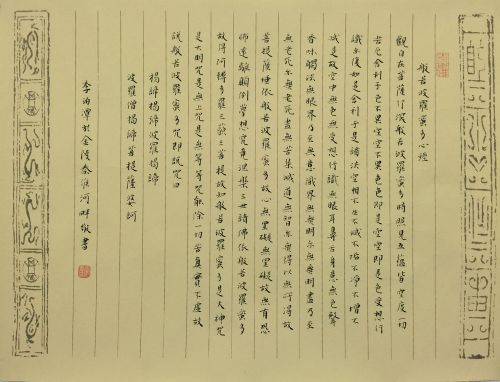 般若波羅蜜多心經
觀自在菩薩行深般若波羅蜜多時照見五蘊皆空度一切
苦厄舍利子色不異空空不異色色即是空空即是色受想行
識亦復如是舍利子是諸法空相不生不滅不垢不淨不增不
減是故空中無色無受想行識無眼耳鼻舌身意無色聲
香味觸法無眼界乃至無意識界無無明亦無無明盡乃至
無老死亦無老死盡無苦集滅道無智亦無得以無所得故
菩提薩埵依般若波羅蜜多故心無罣礙無罣礙故無有恐
怖遠離顛倒夢想究竟涅槃三世諸佛依般若波羅蜜多
故得阿耨多羅三藐三菩提故知般若波羅蜜多是大神咒
是大明咒是無上咒是無等等咒能除一切苦真實不虛故
說般若波羅蜜多咒即說咒曰
揭諦揭諦波羅揭諦
波羅僧揭諦菩提薩婆訶
李泊潭於金陵秦淮河畔敬書